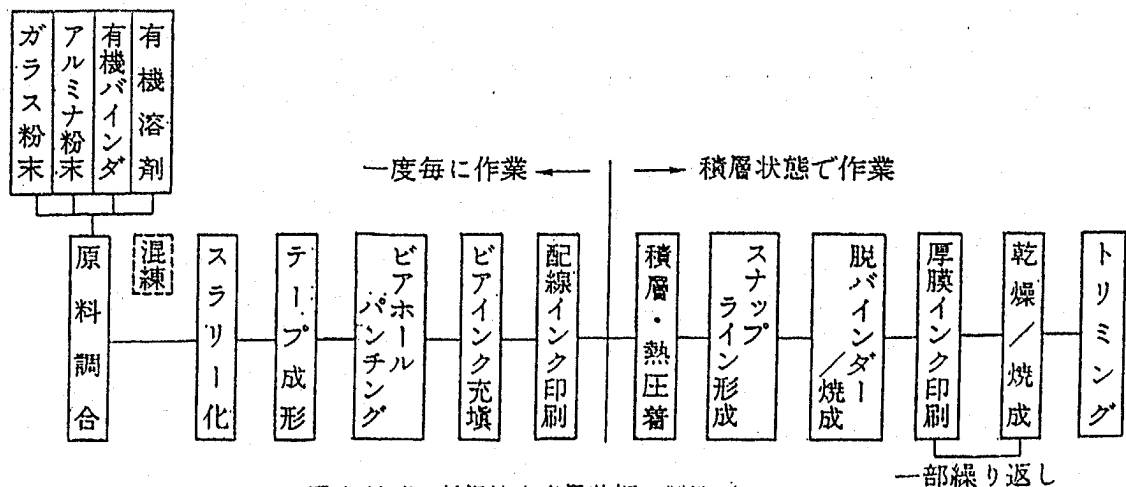 ガラス粉末
アルミナ粉末
有機バインダ
有機溶剤
一度毎に作業
積層状態で作業
原料調合
混練
スラリー化
テープ成形
ビアホール
パンチング
ビアインク充塡
配線インク印刷
積層・熱圧着
スナップ
ライン形成
脱バインダー
／焼成
厚膜インク印刷
乾燥／焼成
トリミング
一部繰り返し